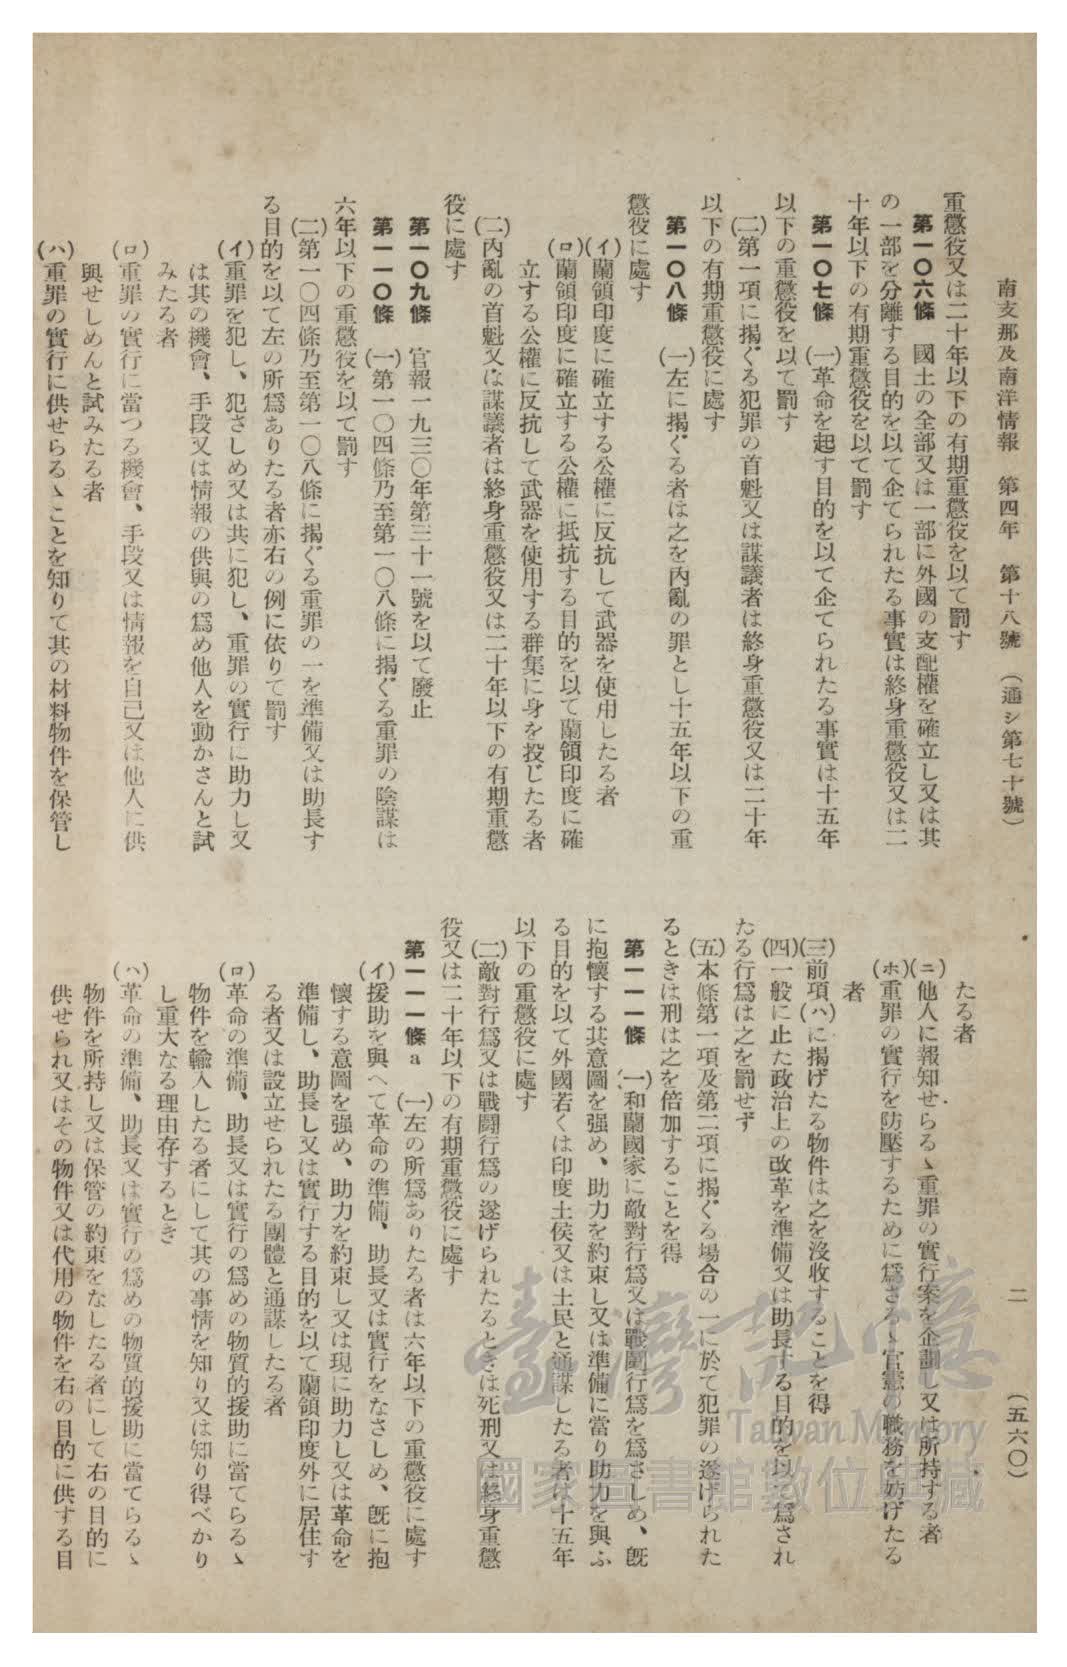 南支那及南洋情報　第四年　第十八號　（通シ第七十號）
二
（五六〇）
重懲役又は二十年以下の有期重懲役を以て罰す
第一〇六條　國土の全部又は一部に外國の支配權を確立し又は其
の一部を分離する目的を以て企てられたる事實は終身重懲役又は二
十年以下の有期重懲役を以て罰す
第一〇七條　（一）革命を起す目的を以て企てられたる事實は十五年
以下の重懲役を以て罰す
（二）第一項に揭ぐる犯罪の首魁又は謀議者は終身重懲役又は二十年
以下の有期重懲役に處す
第一〇八條　（一）左に揭ぐる者は之を內亂の罪とし十五年以下の重
懲役に處す
（イ）蘭領印度に確立する公權に反抗して武器を使用したる者
（ロ）蘭領印度に確立する公權に抵抗する目的を以て蘭領印度に確
立する公權に反抗して武器を使用する群集に身を投じたる者
（二）內亂の首魁又は謀議者は終身重懲役又は二十年以下の有期重懲
役に處す
第一〇九條　官報一九三〇年第三十一號を以て廢止
第一一〇條　（一）第一〇四條乃至第一〇八條に揭ぐる重罪の陰謀は
六年以下の重懲役を以て罰す
（二）第一〇四條乃至第一〇八條に揭ぐる重罪の一を準備又は助長す
る目的を以て左の所爲ありたる者亦右の例に依りて罰す
（イ）重罪を犯し、犯さしめ又は共に犯し、重罪の實行に助力し又
は其の機會、手段又は情報の供與の爲め他人を動かさんと試
みたる者
（ロ）重罪の實行に當つる機會、手段又は情報を自己又は他人に供
與せしめんと試みたる者
（ハ）重罪の實行に供せらるゝことを知りて其の材料物件を保管し
たる者
（ニ）他人に報知せらるゝ重罪の實行案を企劃し又は所持する者
（ホ）重罪の實行を防壓するために爲さるゝ官憲の職務を妨げたる
者
（三）前項（ハ）に揭げたる物件は之を沒收することを得
（四）一般に止た政治上の改革を準備又は助長する目的を以て爲され
たる行爲は之を罰せず
（五）本條第一項及第二項に揭ぐる場合の一に於て犯罪の遂げられた
るときは刑は之を倍加することを得
第一一一條　（一）和蘭國家に敵對行爲又は戰鬪行爲を爲さしめ、旣
に抱懷する其意圖を强め、助力を約束し又は準備に當り助力を與ふ
る目的を以て外國若くは印度土侯又は土民と通謀したる者は十五年
以下の重懲役に處す
（二）敵對行爲又は戰鬪行爲の遂げられたるときは死刑又は終身重懲
役又は二十年以下の有期重懲役に處す
第一一一條a　（一）左の所爲ありたる者は六年以下の重懲役に處す
（イ）援助を與へて革命の準備、助長又は實行をなさしめ、旣に抱
懷する意圖を强め、助力を約束し又は現に助力し又は革命を
準備し、助長し又は實行する目的を以て蘭領印度外に居住す
る者又は設立せられたる團體と通謀したる者
（ロ）革命の準備、助長又は實行の爲めの物質的援助に當てらるゝ
物件を輸入したる者にして其の事情を知り又は知り得べかり
し重大なる理由存するとき
（ハ）革命の準備、助長又は實行の爲めの物質的援助に當てらるゝ
物件を所持し又は保管の約束をなしたる者にして右の目的に
供せられ又はその物件又は代用の物件を右の目的に供する目
臺灣記憶
Taiwan Memory
國家圖書館數位典藏